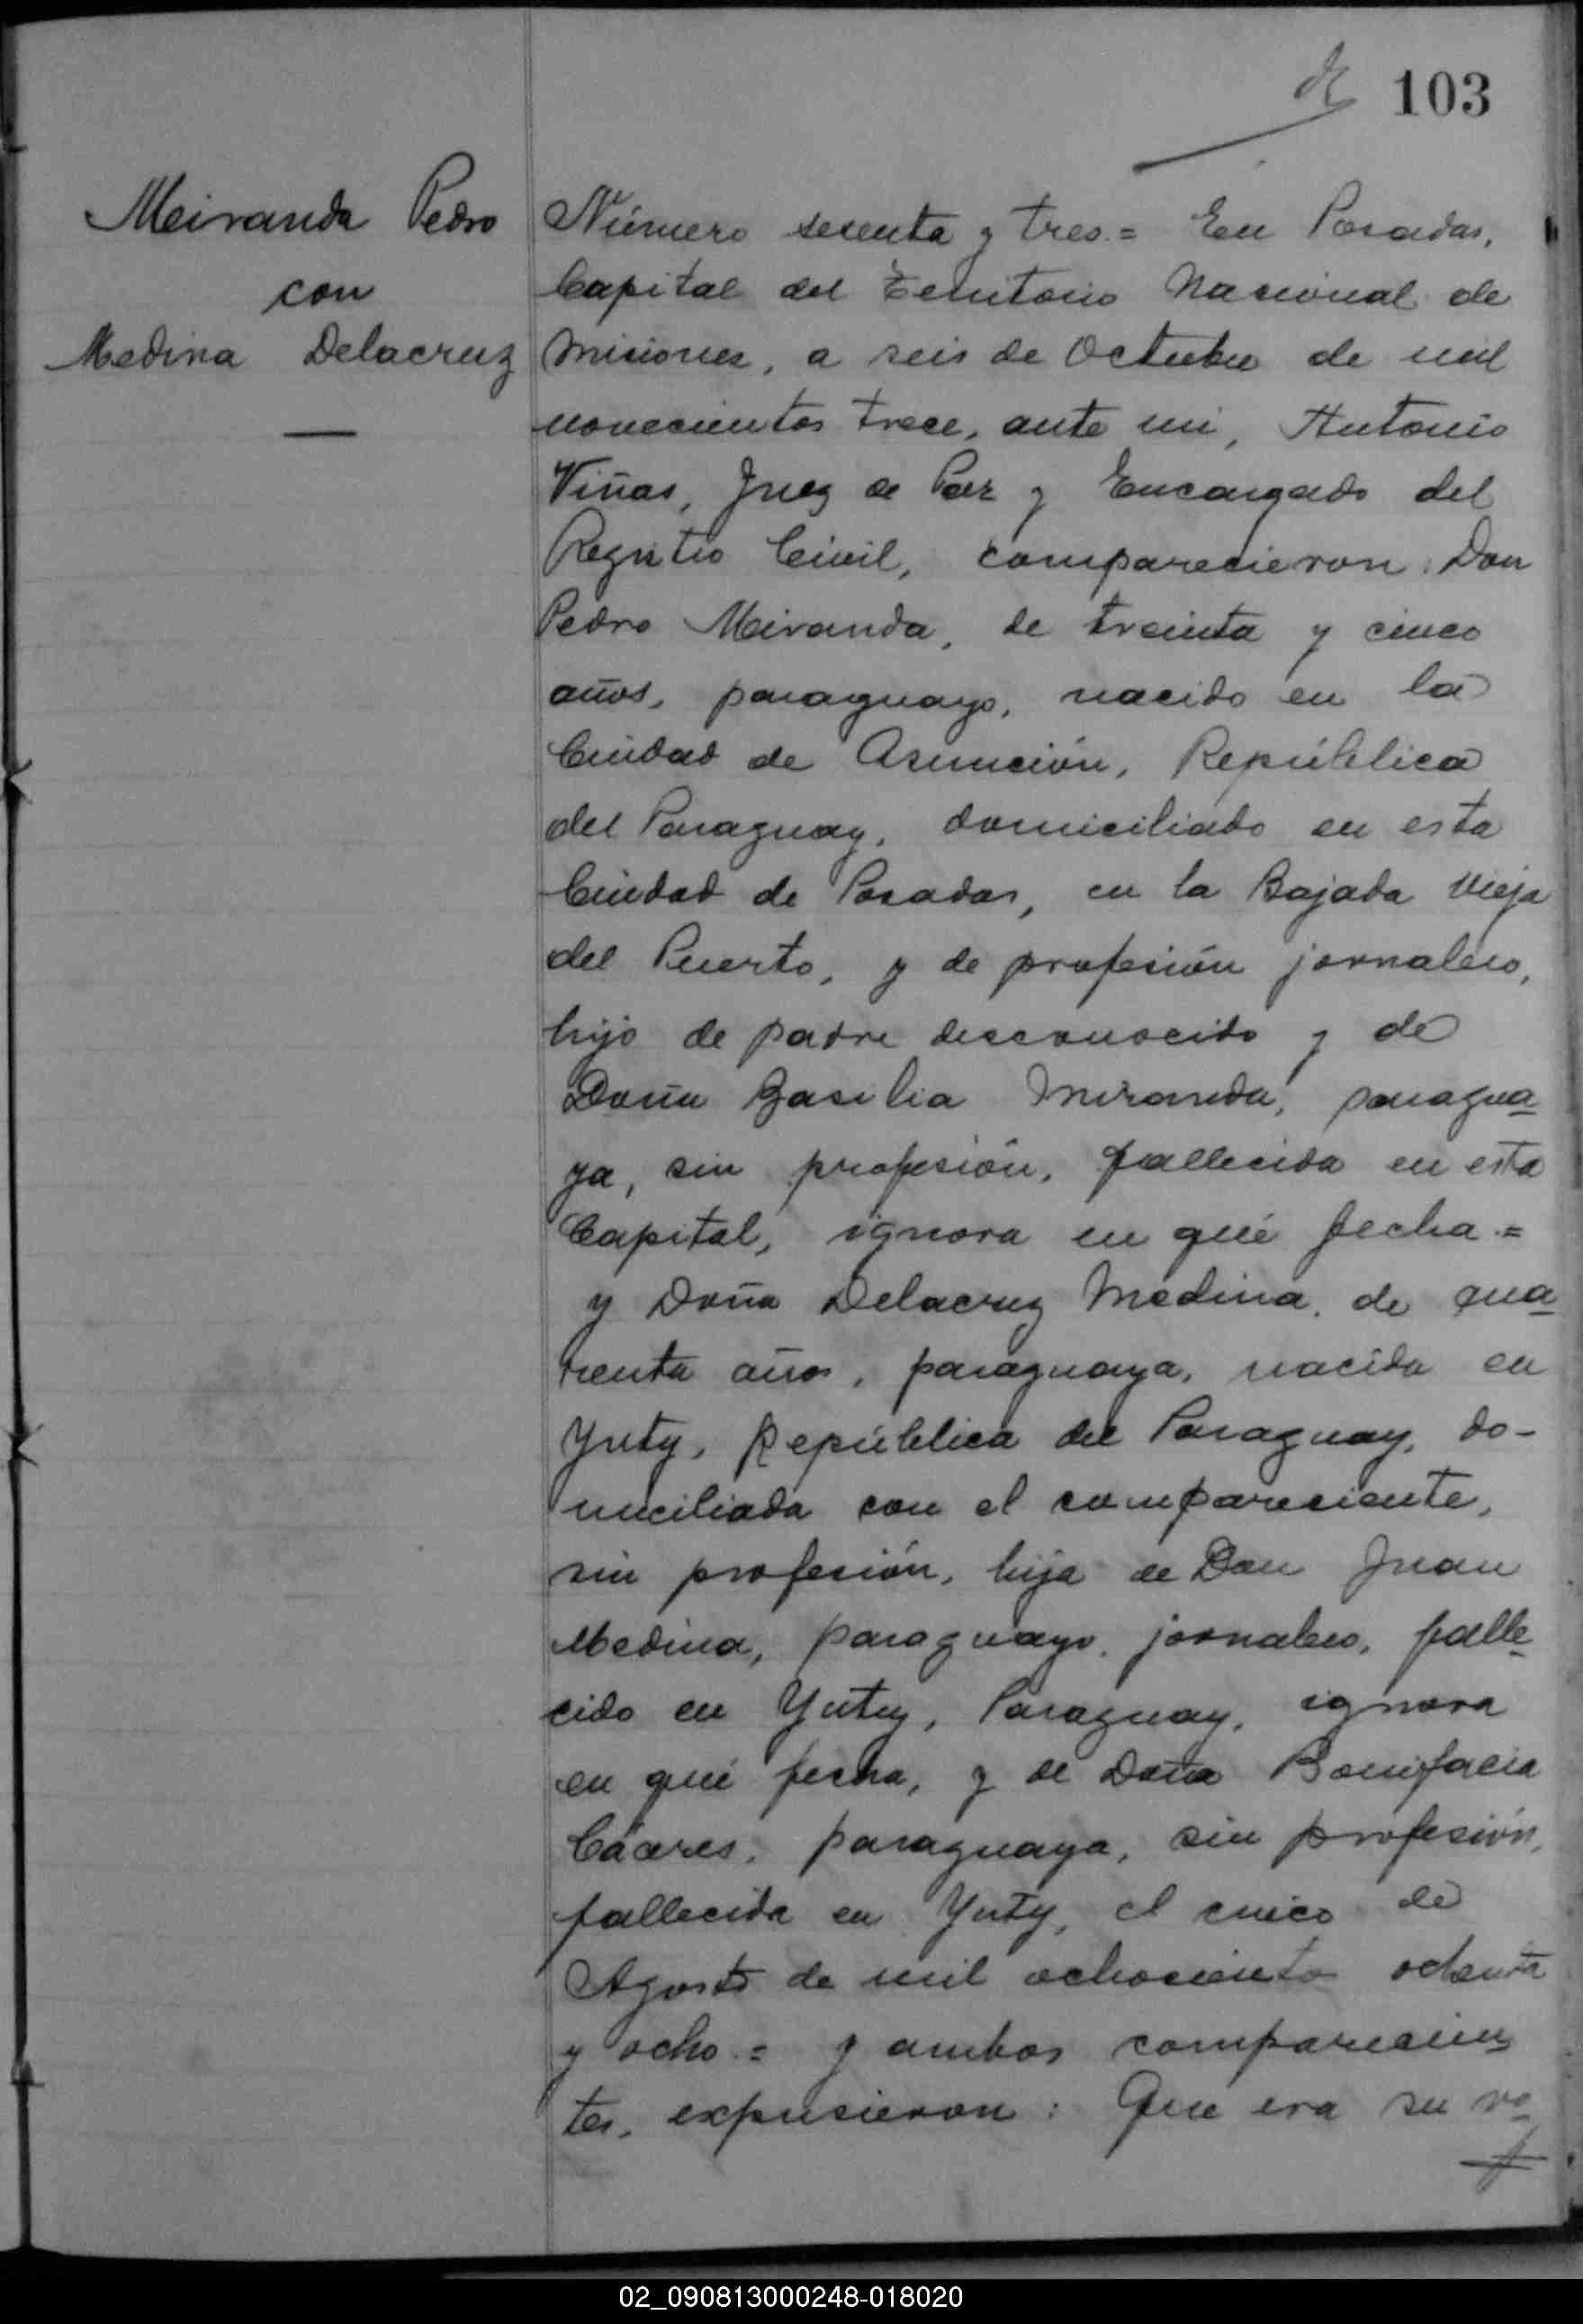 103
Meiranda Pedro
con
Medina Delacruz
Número sesenta y tres.= En Posadas,
Capital del Territorio Nacional de
Misiones, a seis de Octubre de mil
novecientos trece, ante mi, Antonio
Viñas, Juez de Paz y Encargado del
Registro Civil, comparecieron: Don
Pedro Meiranda, de treinta y cinco
años, paraguayo, nacido en la
Ciudad de Asunción, República
del Paraguay, domiciliado en esta
Ciudad de Posadas, en la Bajada Vieja
del Puerto, y de profesión jornalero,
hijo de padre desconocido y de
Doña Basilia Miranda, paragua-
ya, sin profesión, fallecida en esta
Capital, ignora en qué fecha.=
y Doña Delacruz Medina, de qua-
renta años, paraguaya, nacida en
Yuty, República del Paraguay, do-
miciliada con el compareciente,
sin profesión, hija de Don Juan
Medina, paraguayo, jornalero, falle-
cido en Yuty, Paraguay, ignora
en qué fecha, y de Doña Bonifacia
Cáceres, paraguaya, sin profesión,
fallecida en Yuty, el cinco de
Agosto de mil ochociento ochenta
y ocho.= y ambos comparecien-
tes, expusieron: Que era su vo-
02_090813000248-018020